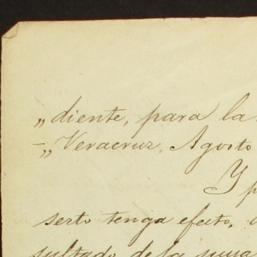 „diente, para la
-„Veracruz, Agosto
Y p
serto tenga efecto,
sultado de la